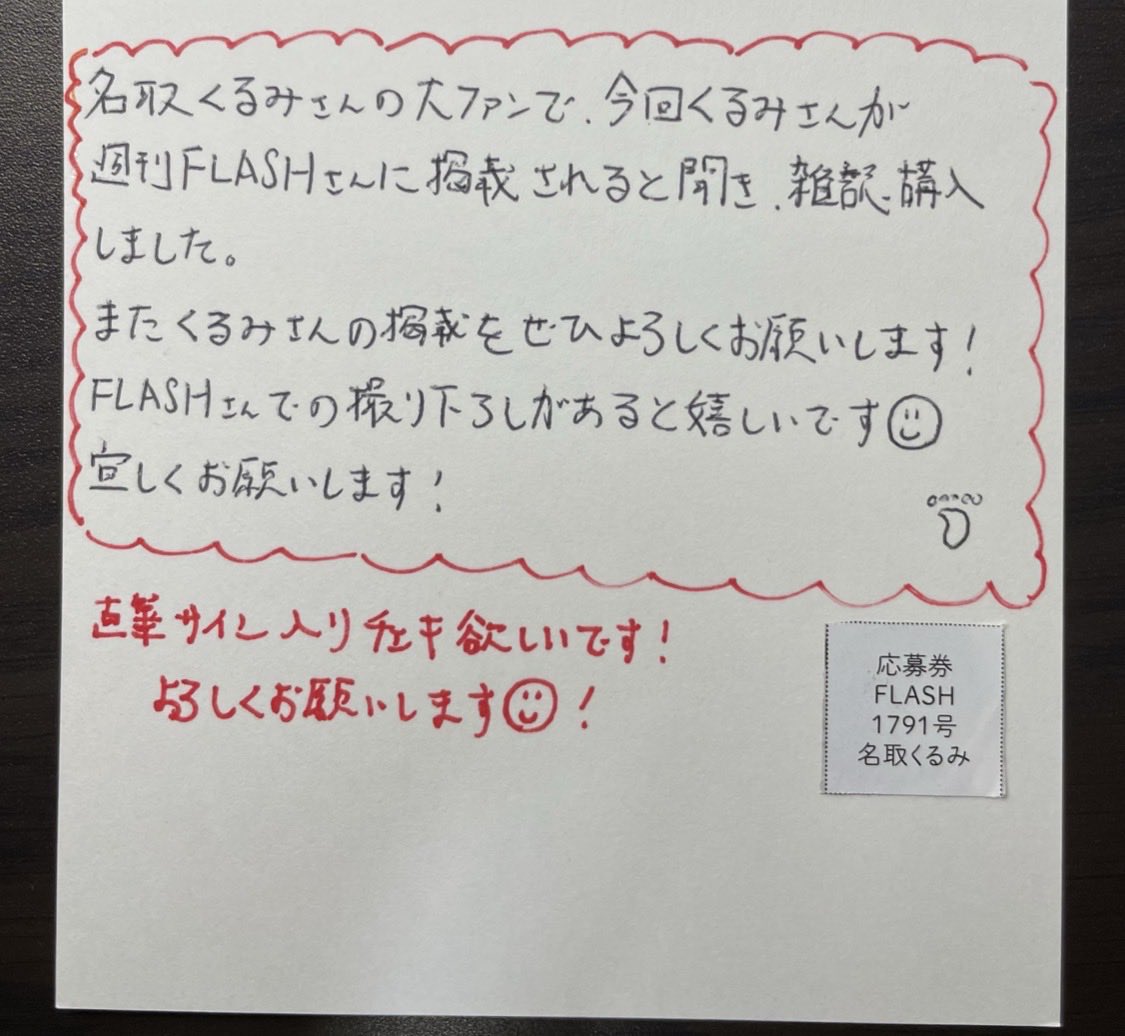 名取くるみさんの大ファンで、今回くるみさんが
週刊FLASHさんに掲載されると聞き、雑誌購入
しました。
またくるみさんの掲載をぜひよろしくお願いします！
FLASHさんでの撮り下ろしがあると嬉しいです
宜しくお願いします！
直筆サイン入りチェキ欲しいです！
よろしくお願いします！
応募券
FLASH
1791号
名取くるみ